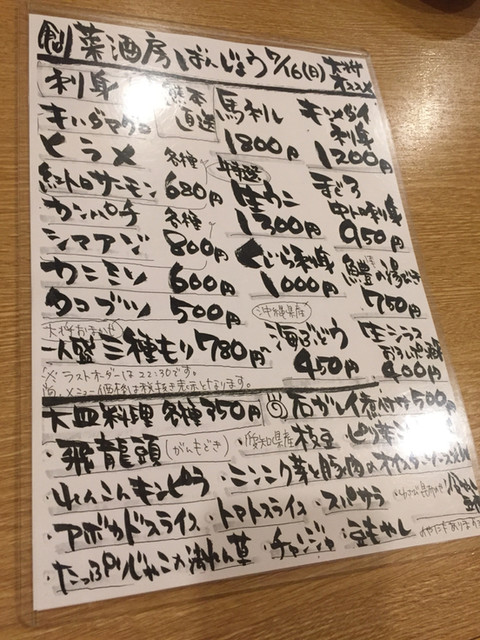 創菜酒房 ばんじょう 7/16(日) オススメ
刺身
キハダマグロ
ヒラメ
紅トロサーモン
各種 680円
カンパチ
シマアジ
各種 800円
カニミソ 600円
タコブツ 500円
一人盛 三種もり 780円
※ラストオーダーは22:30です。
尚、メニュー価格は税抜き表示となります。
熊本直送
馬刺し
1800円
特選
生ウニ
1300円
くじら刺身
1000円
沖縄県産
海ぶどう
450円
キンメダイ
刺身
1200円
まぐろ
中トロ刺身
950円
鱧の湯びき
750円
生シラス
おろしポン酢
400円
大皿料理 各種350円
石ガレイ煮付け 500円
・飛龍頭(がんもどき)
・愛知県産 枝豆
・れんこんキンピラ
・ニンニク芽と豚肉のオイスターソース炒め
・アボカドスライス
・トマトスライス
・スパサラ
・たっぷりじゃこメほうれん草
・チャンジャ
・豆もやし